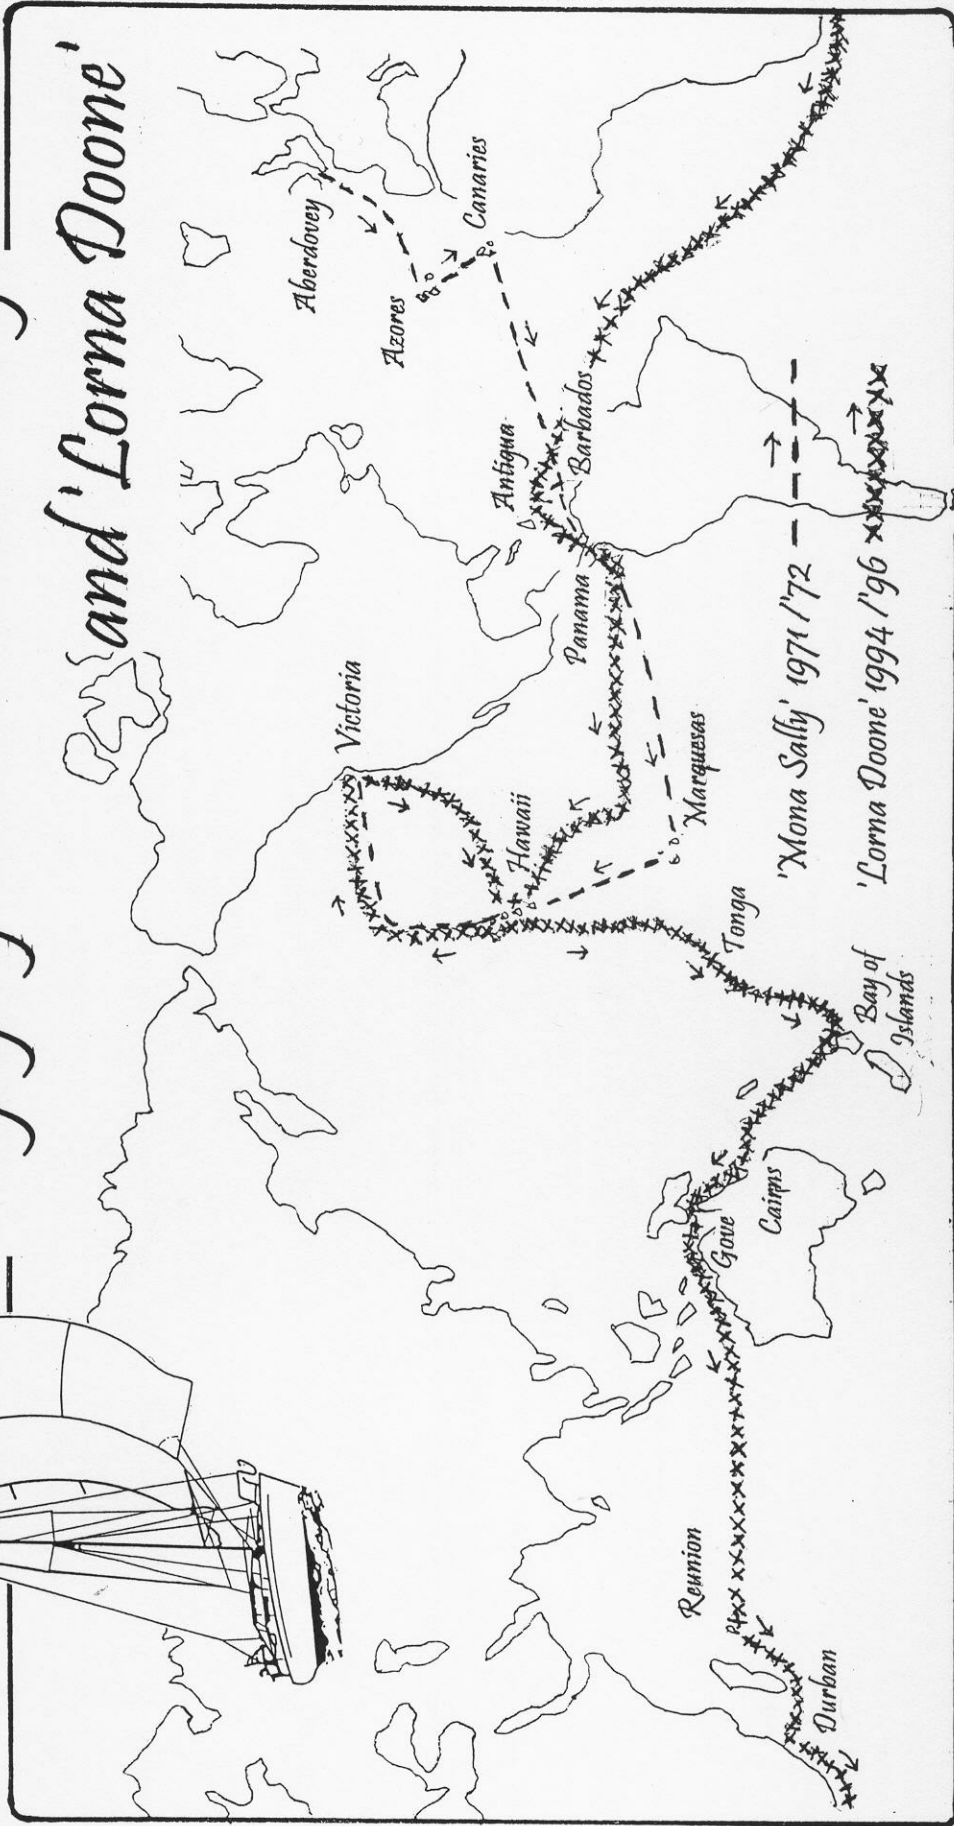 and 'Lorna Doone'
Aberdovey
Azores
Canaries
Victoria
Antigua
Barbados
Panama
Hawaii
Marquesas
Tonga
Bay of
Islands
Cairns
Gove
Reunion
Durban
'Mona Sally' 1971/'72
'Lorna Doone' 1994/'96